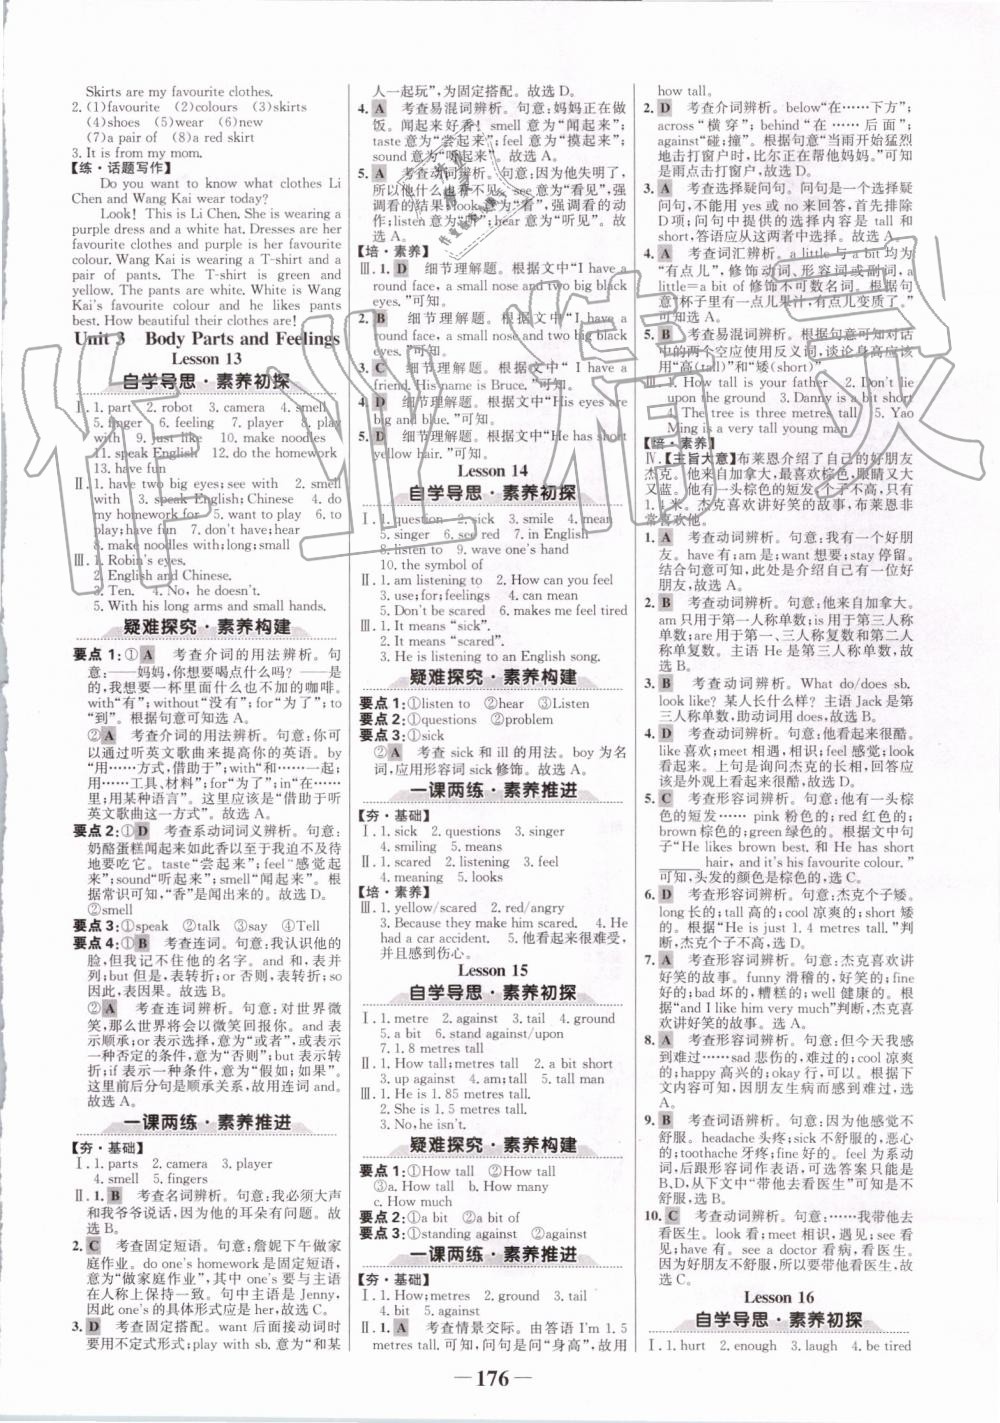 Skirts are my favourite clothes.
2. (1)favourite (2)colours (3)skirts
(4)shoes (5)wear (6)new
(7)a pair of (8)a red skirt
3. It is from my mom.
【练·话题写作】
Do you want to know what clothes Li
Chen and Wang Kai wear today?
Look! This is Li Chen. She is wearing a
purple dress and a white hat. Dresses are her
favourite clothes and purple is her favourite
colour. Wang Kai is wearing a T-shirt and a
pair of pants. The T-shirt is green and
yellow. The pants are white. White is Wang
Kai's favourite colour and he likes pants
best. How beautiful their clothes are!
Unit 3 Body Parts and Feelings
Lesson 13
自学导思·素养初探
Ⅰ. 1. part 2. robot 3. camera 4. smell
5. finger 6. feeling 7. player 8. play
with 9. just like 10. make noodles
11. speak English 12. do the homework
13. have fun
Ⅱ. 1. have two big eyes; see with 2. smell
with 3. speak English; Chinese 4. do
my homework for 5. want to 6. to
play; have fun 7. don't have; hear
8. make noodles with; long; small
Ⅲ. 1. Robin's eyes.
2. English and Chinese.
3. Ten. 4. No, he doesn't.
5. With his long arms and small hands.
疑难探究·素养构建
要点 1:①A 考查介词的用法辨析。句
意:——妈妈,你想要喝点什么吗? ——是
的,我想要一杯里面什么也不加的咖啡。
with“有”;without“没有”;for“为了”;to
“到”。根据句意可知选 A。
②A 考查介词的用法辨析。句意:你可以
通过听英文歌曲来提高你的英语。by
“用……方式,借助于”;with“和……一起;
用……工具、材料”;for“为了”;in“在……
里;用某种语言”。这里应该是“借助于听
英文歌曲这一方式”。故选 A。
要点 2:①D 考查系动词词义辨析。句意:
奶酪蛋糕闻起来如此香以至于我迫不及待
地要吃它。taste“尝起来”;feel“感觉起
来”;sound“听起来”;smell“闻起来”。根
据常识可知,“香”是闻出来的。故选 D。
②smell
要点 3:①speak ②talk ③say ④Tell
要点 4:①B 考查连词。句意:我认识他的
脸,但我记不住他的名字。and 和,表并
列;but 但是,表转折;or 否则,表转折;so
因此,表因果。故选 B。
②A 考查连词辨析。句意:对世界微
笑,那么世界将会以微笑回报你。and 表
示顺承;or 表示选择,意为“或者”,或表示
一种否定的条件,意为“否则”;but 表示转
折;if 表示一种条件,意为“假如;如果”。
这里前后分句是顺承关系,故用连词 and。
故选 A。
一课两练·素养推进
【夯·基础】
Ⅰ. 1. parts 2. camera 3. player
4. smell 5. fingers
Ⅱ. 1. B 考查名词辨析。句意:我必须大声
和我爷爷说话,因为他的耳朵有问题。
故选 B。
2. C 考查固定短语。句意:詹妮下午做家
庭作业。do one's homework 是固定短语,
意为“做家庭作业”,其中 one's 要与主语
在人称上保持一致。句中主语是 Jenny,
因此 one's 的具体形式应是 her,故选 C。
3. D 考查固定搭配。want 后面接动词时
要用不定式形式;play with sb. 意为“和某
人一起玩”,为固定搭配。故选 D。
4. A 考查易混词辨析。句意:妈妈正在做
饭。闻起来好香! smell 意为“闻起来”;
taste 意为“尝起来”;feel 意为“摸起来”;
sound 意为“听起来”。故选 A。
5. A 考查动词辨析。句意:因为他失明了,
所以他什么也看不见。see 意为“看见”,强
调看的结果;look 意为“看”,强调看的动
作;listen 意为“听”;hear 意为“听见”。故
选 A。
【培·素养】
Ⅲ. 1. D 细节理解题。根据文中“I have a
round face, a small nose and two big black
eyes. ”可知。
2. B 细节理解题。根据文中“I have a
round face, a small nose and two big black
eyes. ”可知。
3. C 细节理解题。根据文中“ I have a
friend. His name is Bruce. ”可知。
4. D 细节理解题。根据文中“His eyes are
big and blue. ”可知。
5. D 细节理解题。根据文中“He has short
yellow hair. ”可知。
Lesson 14
自学导思·素养初探
Ⅰ. 1. question 2. sick 3. smile 4. mean
5. singer 6. see red 7. in English
8. listen to 9. wave one's hand
10. the symbol of
Ⅱ. 1. am listening to 2. How can you feel
3. use; for; feelings 4. can mean
5. Don't be scared 6. makes me feel tired
Ⅲ. 1. It means “sick”.
2. It means “scared”.
3. He is listening to an English song.
疑难探究·素养构建
要点 1:①listen to ②hear ③Listen
要点 2:①questions ②problem
要点 3:①sick
②A 考查 sick 和 ill 的用法。boy 为名
词,应用形容词 sick 修饰。故选 A。
一课两练·素养推进
【夯·基础】
Ⅰ. 1. sick 2. questions 3. singer
4. smiling 5. means
Ⅱ. 1. scared 2. listening 3. feel
4. meaning 5. looks
【培·素养】
Ⅲ. 1. yellow/scared 2. red/angry
3. Because they make him scared. 4. He
had a car accident. 5. 他看起来很难受,
并且感到伤心。
Lesson 15
自学导思·素养初探
Ⅰ. 1. metre 2. against 3. tail 4. ground
5. a bit 6. stand against/upon
7. 1. 8 metres tall
Ⅱ. 1. How tall; metres tall 2. a bit short
3. up against 4. am; tall 5. tall man
Ⅲ. 1. He is 1. 85 metres tall.
2. She is 1. 5 metres tall.
3. No, he isn't.
疑难探究·素养构建
要点 1:①How tall ②How tall
③a. How tall b. How many
c. How much
要点 2:①a bit ②a bit of
要点 3:①standing against ②against
一课两练·素养推进
【夯·基础】
Ⅰ. 1. How; metres 2. ground 3. tail
4. bit 5. against
Ⅱ. 1. A 考查情景交际。由答语 I'm 1. 5
metres tall. 可知,问句是问“身高”,故用
how tall.
2. D 考查介词辨析。below“在……下方”;
across “横穿”;behind “在……后面”;
against“碰;撞”。根据句意“当雨开始猛烈
地击打窗户时,比尔正在帮他妈妈。”可知
是雨点击打窗户。故选 D。
3. A 考查选择疑问句。问句是一个选择疑
问句,不能用 yes 或 no 来回答,首先排除
D 项;问句中提供的选择内容是 tall 和
short,答语应从这两者中选择。故选 A。
4. A 考查词汇辨析。a little 与 a bit 均为
“有点儿”,修饰动词、形容词或副词。a
little=a bit of 修饰不可数名词。根据句
意“杯子里有一点儿果汁,有点儿变质了。”
可知选 A
5. B 考查易混词辨析。根据句意可知对话
中的两个空应使用反义词,谈论身高应该
用“高(tall)”和“矮(short)”。
Ⅲ. 1. How tall is your father 2. Don't lie
upon the ground 3. Danny is a bit short
4. The tree is three metres tall 5. Yao
Ming is a very tall young man
【培·素养】
Ⅳ.【主旨大意】布莱恩介绍了自己的好朋友
杰克。他来自加拿大,最喜欢棕色,眼睛又大
又蓝。他有一头棕色的短发,个子不高,只有
1. 4 米。杰克喜欢讲好笑的故事,布莱恩非
常喜欢他。
1. A 考查动词辨析。句意:我有一个好朋
友。have 有;am 是;want 想要;stay 停留。
结合句意,此处是介绍自己有一位好
朋友,故选 A。
2. B 考查动词辨析。句意:他来自加拿大。
am 只用于第一人称单数;is 用于第三人称
单数;are 用于第一、三人称复数和第二人
称单复数。主语 He 是第三人称单数,
故选 B。
3. B 考查动词辨析。What do/does sb.
look like? 某人长什么样? 主语 Jack 是第
三人称单数,助动词用 does,故选 B。
4. D 考查动词辨析。句意:他看起来很酷。
like 喜欢;meet 相遇,相识;feel 感觉;look
看起来。上句是询问杰克的长相,回答应
该是外貌上看起来很酷。故选 D。
5. C 考查形容词辨析。句意:他有一头棕
色的短发…… pink 粉色的;red 红色的;
brown 棕色的;green 绿色的。根据文中句
子“He likes brown best. 和 He has short
______ hair, and it's his favourite colour. ”
可知,头发的颜色是棕色的,选 C。
6. D 考查形容词辨析。句意:杰克个子矮。
long 长的;tall 高的;cool 凉爽的;short 矮
的。根据“He is just 1. 4 metres tall. ”判
断,杰克个子不高,选 D。
7. A 考查形容词辨析。句意:杰克喜欢讲
好笑的故事。funny 滑稽的,好笑的;fine
好的;bad 坏的,糟糕的;well 健康的。根
据“and I like him very much”判断,杰克
喜欢讲好笑的故事。选 A。
8. A 考查形容词辨析。句意:但今天我感
到难过……sad 悲伤的,难过的;cool 凉爽
的;happy 高兴的;okay 行,可以。根据下
文内容可知,因朋友生病而感到难过,选
A。
9. B 考查词语辨析。句意:因为他感觉不
舒服。headache 头疼;sick 不舒服的,恶心
的;toothache 牙疼;feel 为系动词,
后跟形容词作表语,可选答案只能是
B,D,从下文中“带他去看医生”可知是不
舒服,选 B。
10. C 考查动词辨析。句意:……我带他去
看医生。look 看;meet 相识,遇见;see 看
见,看;see a doctor 看病,看医生。因
此选 C。
Lesson 16
自学导思·素养初探
Ⅰ. 1. hurt 2. enough 3. laugh 4. be tired
— 176 —
作业精灵